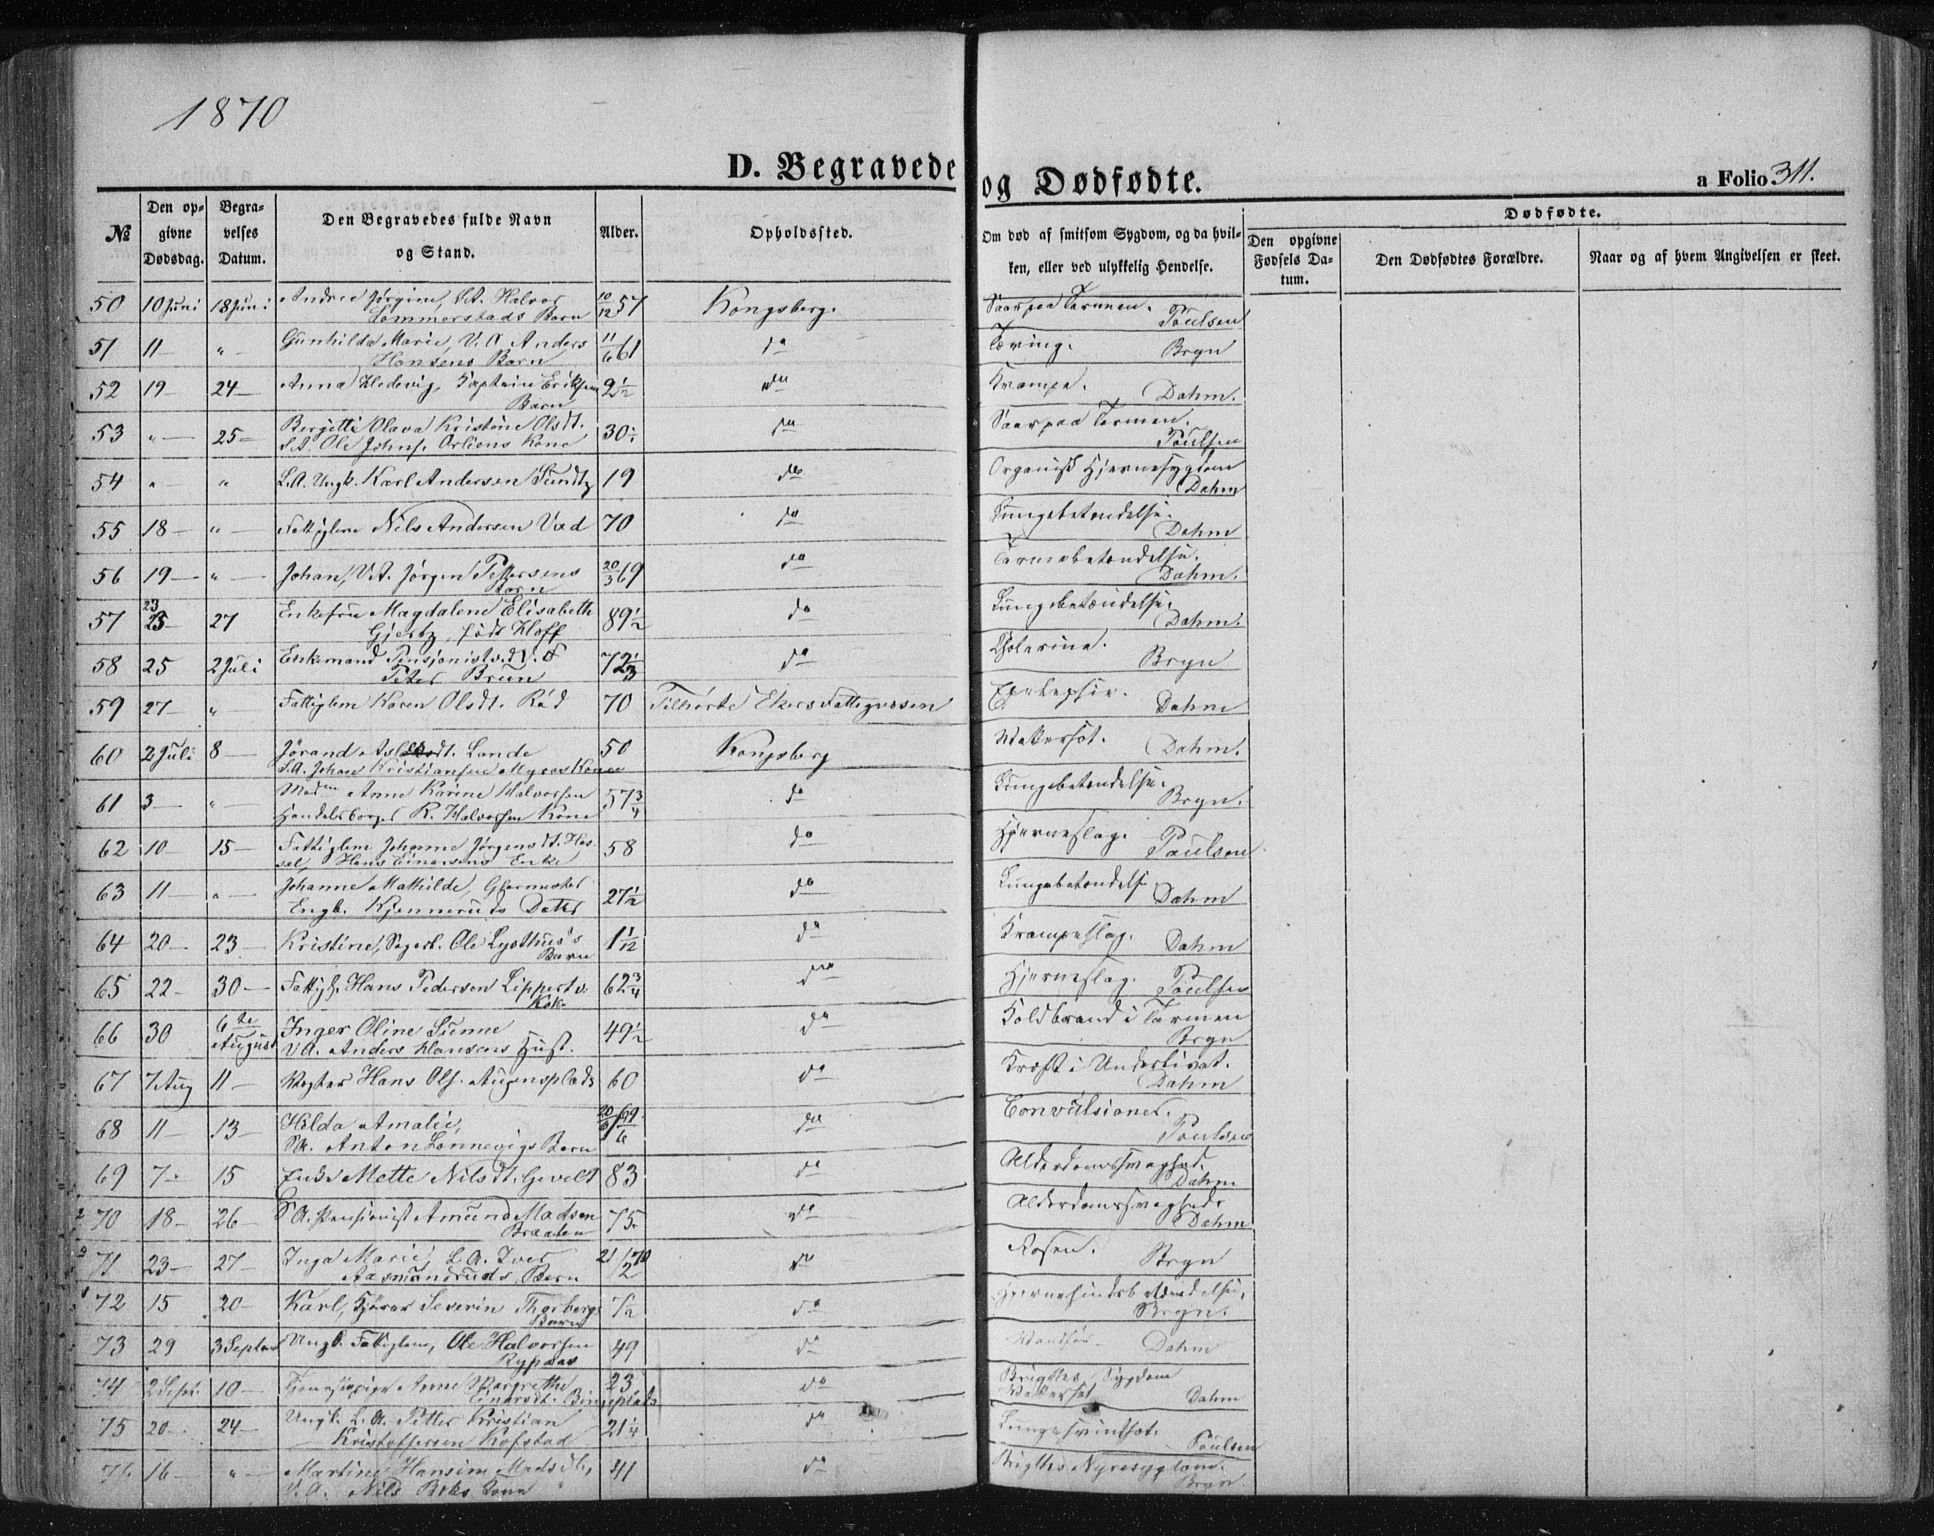 1870
D. Begravede og Dødfødte.
a Folio 311.
№
Den opgivne Dødsdag.
Begravelses Datum.
Den Begravedes fulde Navn og Stand.
Alder.
Opholdssted.
Om død af smitsom Sygdom, og da hvilken, eller ved ulykkelig Hendelse.
Dødfødte.
Den opgivne Fødsels Datum.
Den Dødfødtes Forældre.
Naar og af hvem Angivelsen er skeet.
50 10 Juni 18 Juni Andrea Jørgine, S.A. Halvor 10/12 57 Kongsberg. Saar paa Tarmen.
Lommerstads Barn Paulsen
51 11 — " — Gunhilde Marie, V.A. Anders 11/6 61 do Tæring. Bryn
Hansens Barn
52 19 — 24 — Anna Hedevig, Kaptein Eriksens 9 1/2 do Krampe. Dahm.
Barn
53 " — 25 — Bergitte Olava Kristine Olsdt. 30 do Saar paa Tarmen.
S.A. Ole Johns. Orliens Kone Paulsen
54 " " L.A. Ungk. Karl Andersen Sundtz 19 do Organisk Hjernesygdom
Dahm
55 18 — " — Fattiglem Nils Andersen Vad 70 do Lungebetændelse.
Dahm
56 19 — " — Johan, V.A. Jørgen Pettersens 20/3 69 do Tarmebetændelse.
Barn Dahm.
57 23 27 Enkefru Magdalene Elisabeth 89 1/2 do Lungebetændelse.
Gjertz, født Hoff Dahm.
58 25 2 Juli Enkemand Pensjonist v.d.V.F 72 1/3 do Cholerine.
Peter Brun Bryn
59 27 — " Fattiglem Karen Olsdt. Rød 70 Tilhørte Ekers Fattigvæsen Epilepsie. Dahm
60 2 Juli 8 — Jørand Asl dt. Lande 50 Kongsberg Vattersot. Dahm.
S.A. Johan Kristiansen Myras Kone
61 3 — " — Madm Anne Karine Halvorsen 57 3/4 do Lungebetændelse.
Handelsborger R. Halvorsen Kone Bryn.
62 10 — 15 — Fattiglem Johanne Jørgensdt. Has- 58 do Hjerneslag.
sel, Hans Einarsens Enke Paulsen
63 11 — " — Johanne Mathilde, Glarmester 27 1/2 do Lungebetændelse
Engb. Kjenneruds Datter Dahm
64 20 — 23 — Kristine, Sagarb. Ole Lysthus's 1 1/12 do Krampeslag. Dahm
Barn
65 22 — 30 — Fattigl. Hans Pedersen Lippert v. 62 3/4 do Hjerneslag. Paulsen
Kok
66 30 6te August Inger Oline Sunne 49 1/2 do Koldbrand i Tarmen
V.A. Anders Hansens Hust. Bryn
67 7 Aug 11 — Vægter Hans Ols. Augensplads 60 do Kræft i Underlivet.
Dahm
68 11 — 13 — Hilda Amalie, 20/6 69 do Convulsioner.
Sk. Anton Lønnevigs Barn Paulsen
69 7 — 15 Enke Mette Nilsdt. Gevelt 83 do Alderdomssvaghed.
Dahm
70 18 — 26 — S.A. Pensionist Amund Madsen 75 do Alderdomssvaghed
Braaten Dahm
71 23 — 27 — Inga Marie, L.A. Iver 21/2 70 do Rosen. Bryn
Aasmundruds Barn
72 15 20 — Karl, Kjører Severin Thorbergs 1/2 do Hjernehindebetændelse,
Barn Bryn.
73 29 3 Septbr Ungk. Fattiglem, Ole Halvorsen 49 do Vandsot. Dahm
Rypaas
74 2 Sept. 10 — Anne Margrethe 23 do Brigthes Sygdom
Einarsdt. Bingeplads Vattersot Dahm
75 20 — 24 — Ungk. L.A. Petter Kristian 21 1/4 do Lungesvindsot.
Kristoffersen Kofstad Paulsen
76 16 — " — Martine Hansine Madsdt., 41 do Brigthes Nyresygdom.
V.A. Nils Beks Kone Bryn